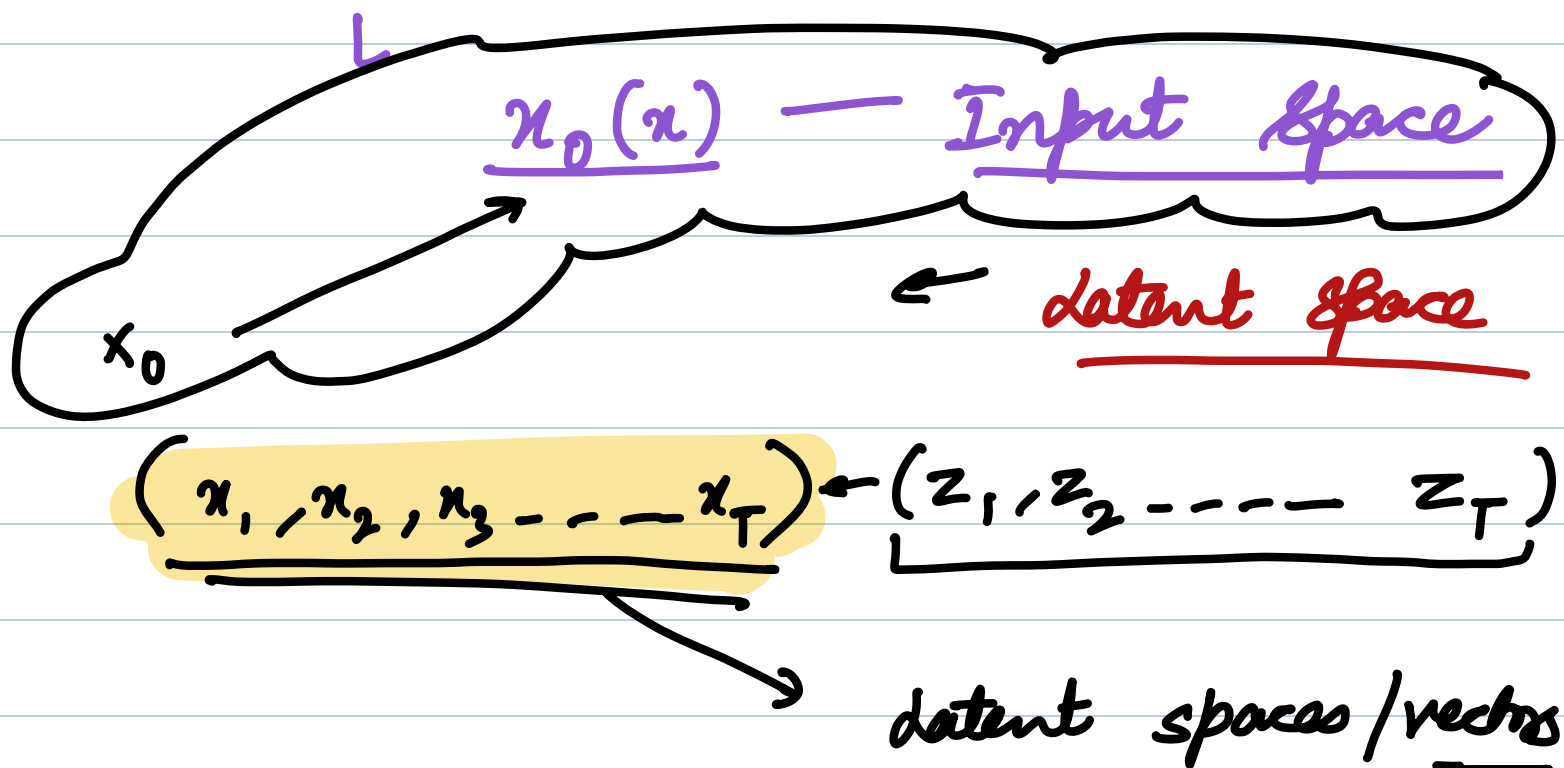 x₀ (x) — Input Space
Latent Space
x₀
(x₁, x₂, x₃ - - - x_T) ← (z₁, z₂ - - - - z_T)
Latent spaces/vectors